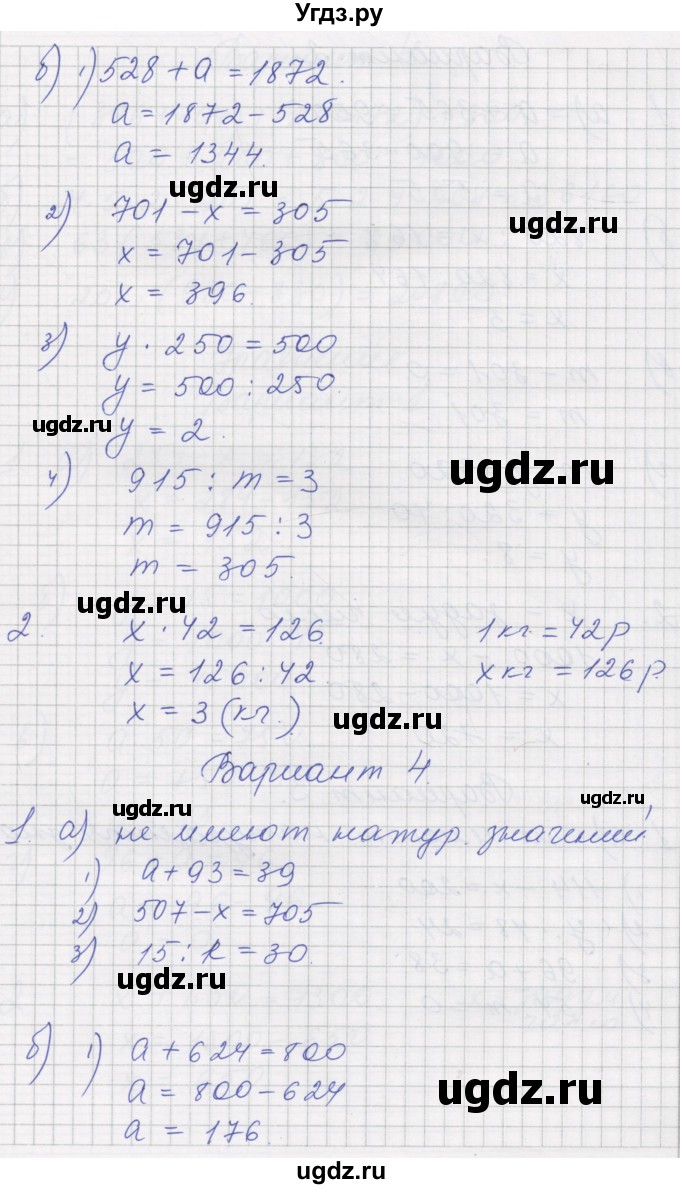 Угдз.ру
б) 1) 528 + a = 1872.
a = 1872 - 528
a = 1344.
ugdz.ru
ugdz.ru
2) 701 - x = 305
x = 701 - 305
x = 396.
3) y · 250 = 500
y = 500 : 250.
ugdz.ru
y = 2.
ugdz.ru
4) 915 : m = 3
m = 915 : 3
m = 305.
ugdz.ru
2. x · 42 = 126. 1 кг. = 42 р
x = 126 : 42. x кг = 126 р.
x = 3 (кг.)
ugdz.ru
Вариант 4.
ugdz.ru
ugdz.ru
1. а) не имеют натур. значений,
1) a + 93 = 39
2) 507 - x = 705
3) 15 : k = 30.
ugdz.ru
б) 1) a + 624 = 800
a = 800 - 624
ugdz.ru
a = 176.
ugdz.ru